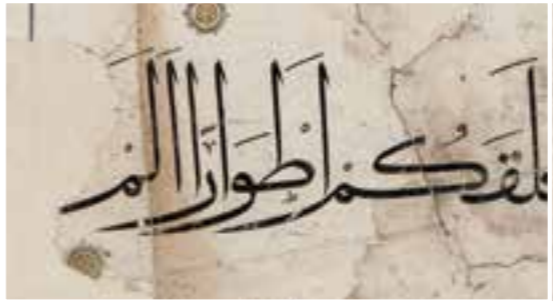 خلقَكُمْ أَطْوَارًا أَلَمْ